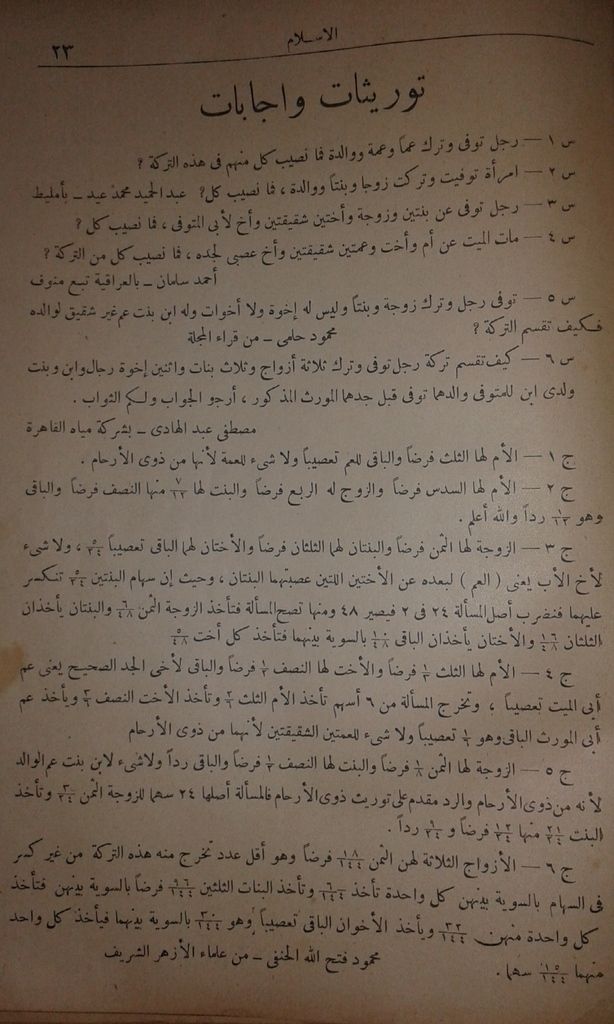 الاسلام
٢٣
توريثات واجابات
س ١ — رجل توفى وترك عماً وعمة ووالدة فما نصيب كل منهم فى هذه التركة ؟
س ٢ — امرأة توفيت وتركت زوجا وبنتاً ووالدة ، فما نصيب كل؟ عبد الحميد محمد عيد ـ بأمليط
س ٣ — رجل توفى عن بنتين وزوجة وأختين شقيقتين وأخ لأبى المتوفى ، فما نصيب كل ؟
س ٤ — مات الميت عن أم وأخت وعمتين شقيقتين وأخ عصبى لجده ، فما نصيب كل من التركة ؟
أحمد سامان ـ بالعراقية تبع منوف
س ٥ — توفى رجل وترك زوجة وبنتاً وليس له إخوة ولا أخوات وله ابن بنت عم غير شقيق لوالده
فكيف تقسم التركة ؟ محمود حلمى ـ من قراء المجلة
س ٦ — كيف تقسم تركة رجل توفى وترك ثلاثة أزواج وثلاث بنات واثنين إخوة رجال وابن وبنت
ولدى ابن للمتوفى والدهما توفى قبل جدهما المورث المذكور ، أرجو الجواب ولكم الثواب .
مصطفى عبد الهادى ـ بشركة مياه القاهرة
ج ١ — الأم لها الثلث فرضاً والباقى للعم تعصيباً ولا شىء للعمة لأنها من ذوى الأرحام .
ج ٢ — الأم لها السدس فرضاً والزوج له الربع فرضاً والبنت لها منها النصف فرضاً والباقى
وهو رداً والله أعلم .
ج ٣ — الزوجة لها الثمن فرضاً والبنتان لهما الثلثان فرضاً والأختان لهما الباقى تعصيباً ٥/٢٤ ، ولا شىء
لأخ الأب يعنى ( العم ) لبعده عن الأختين اللتين عصبتهما البنتان ، وحيث إن سهام البنتين تنكسر
عليهما فنضرب أصل المسألة ٢٤ فى ٢ فيصير ٤٨ ومنها تصح المسألة فتأخذ الزوجة الثمن ٦/٤٨ والبنتان يأخذان
الثلثان والأختان يأخذان الباقى ١٠/٤٨ بالسوية بينهما فتأخذ كل أخت ٥/٤٨
ج ٤ — الأم لها الثلث فرضاً والأخت لها النصف فرضاً والباقى لأخى الجد الصحيح يعنى عم
أبى الميت تعصيباً ، وتخرج المسألة من ٦ أسهم تأخذ الأم الثلث ٢/٦ وتأخذ الأخت النصف ٣/٦ ويأخذ عم
أبى المورث الباقى وهو ١/٦ تعصيباً ولا شىء للعمتين الشقيقتين لأنهما من ذوى الأرحام
ج ٥ — الزوجة لها الثمن ١/٨ فرضاً والبنت لها النصف ١/٢ فرضاً والباقى رداً ولا شىء لابن بنت عم الوالد
لأنه من ذوى الأرحام والرد مقدم على توريث ذوى الأرحام فالمسألة أصلها ٢٤ سهما للزوجة الثمن ٣/٢٤ وتأخذ
البنت ٢١/٢٤ منها ١٢/٢٤ فرضاً و ٩/٢٤ رداً .
ج ٦ — الأزواج الثلاثة لهن الثمن ١٨/١٤٤ فرضاً وهو أقل عدد تخرج منه هذه التركة من غير كسر
فى السهام بالسوية بينهن كل واحدة تأخذ ٦/١٤٤ وتأخذ البنات الثلثين ٩٦/١٤٤ فرضاً بالسوية بينهن فتأخذ
كل واحدة منهن ٣٢/١٤٤ ويأخذ الأخوان الباقى تعصيباً وهو ٣٠/١٤٤ بالسوية بينهما فيأخذ كل واحد
منهما ١٥/١٤٤ سهما . محمود فتح الله الحنفى ـ من علماء الأزهر الشريف